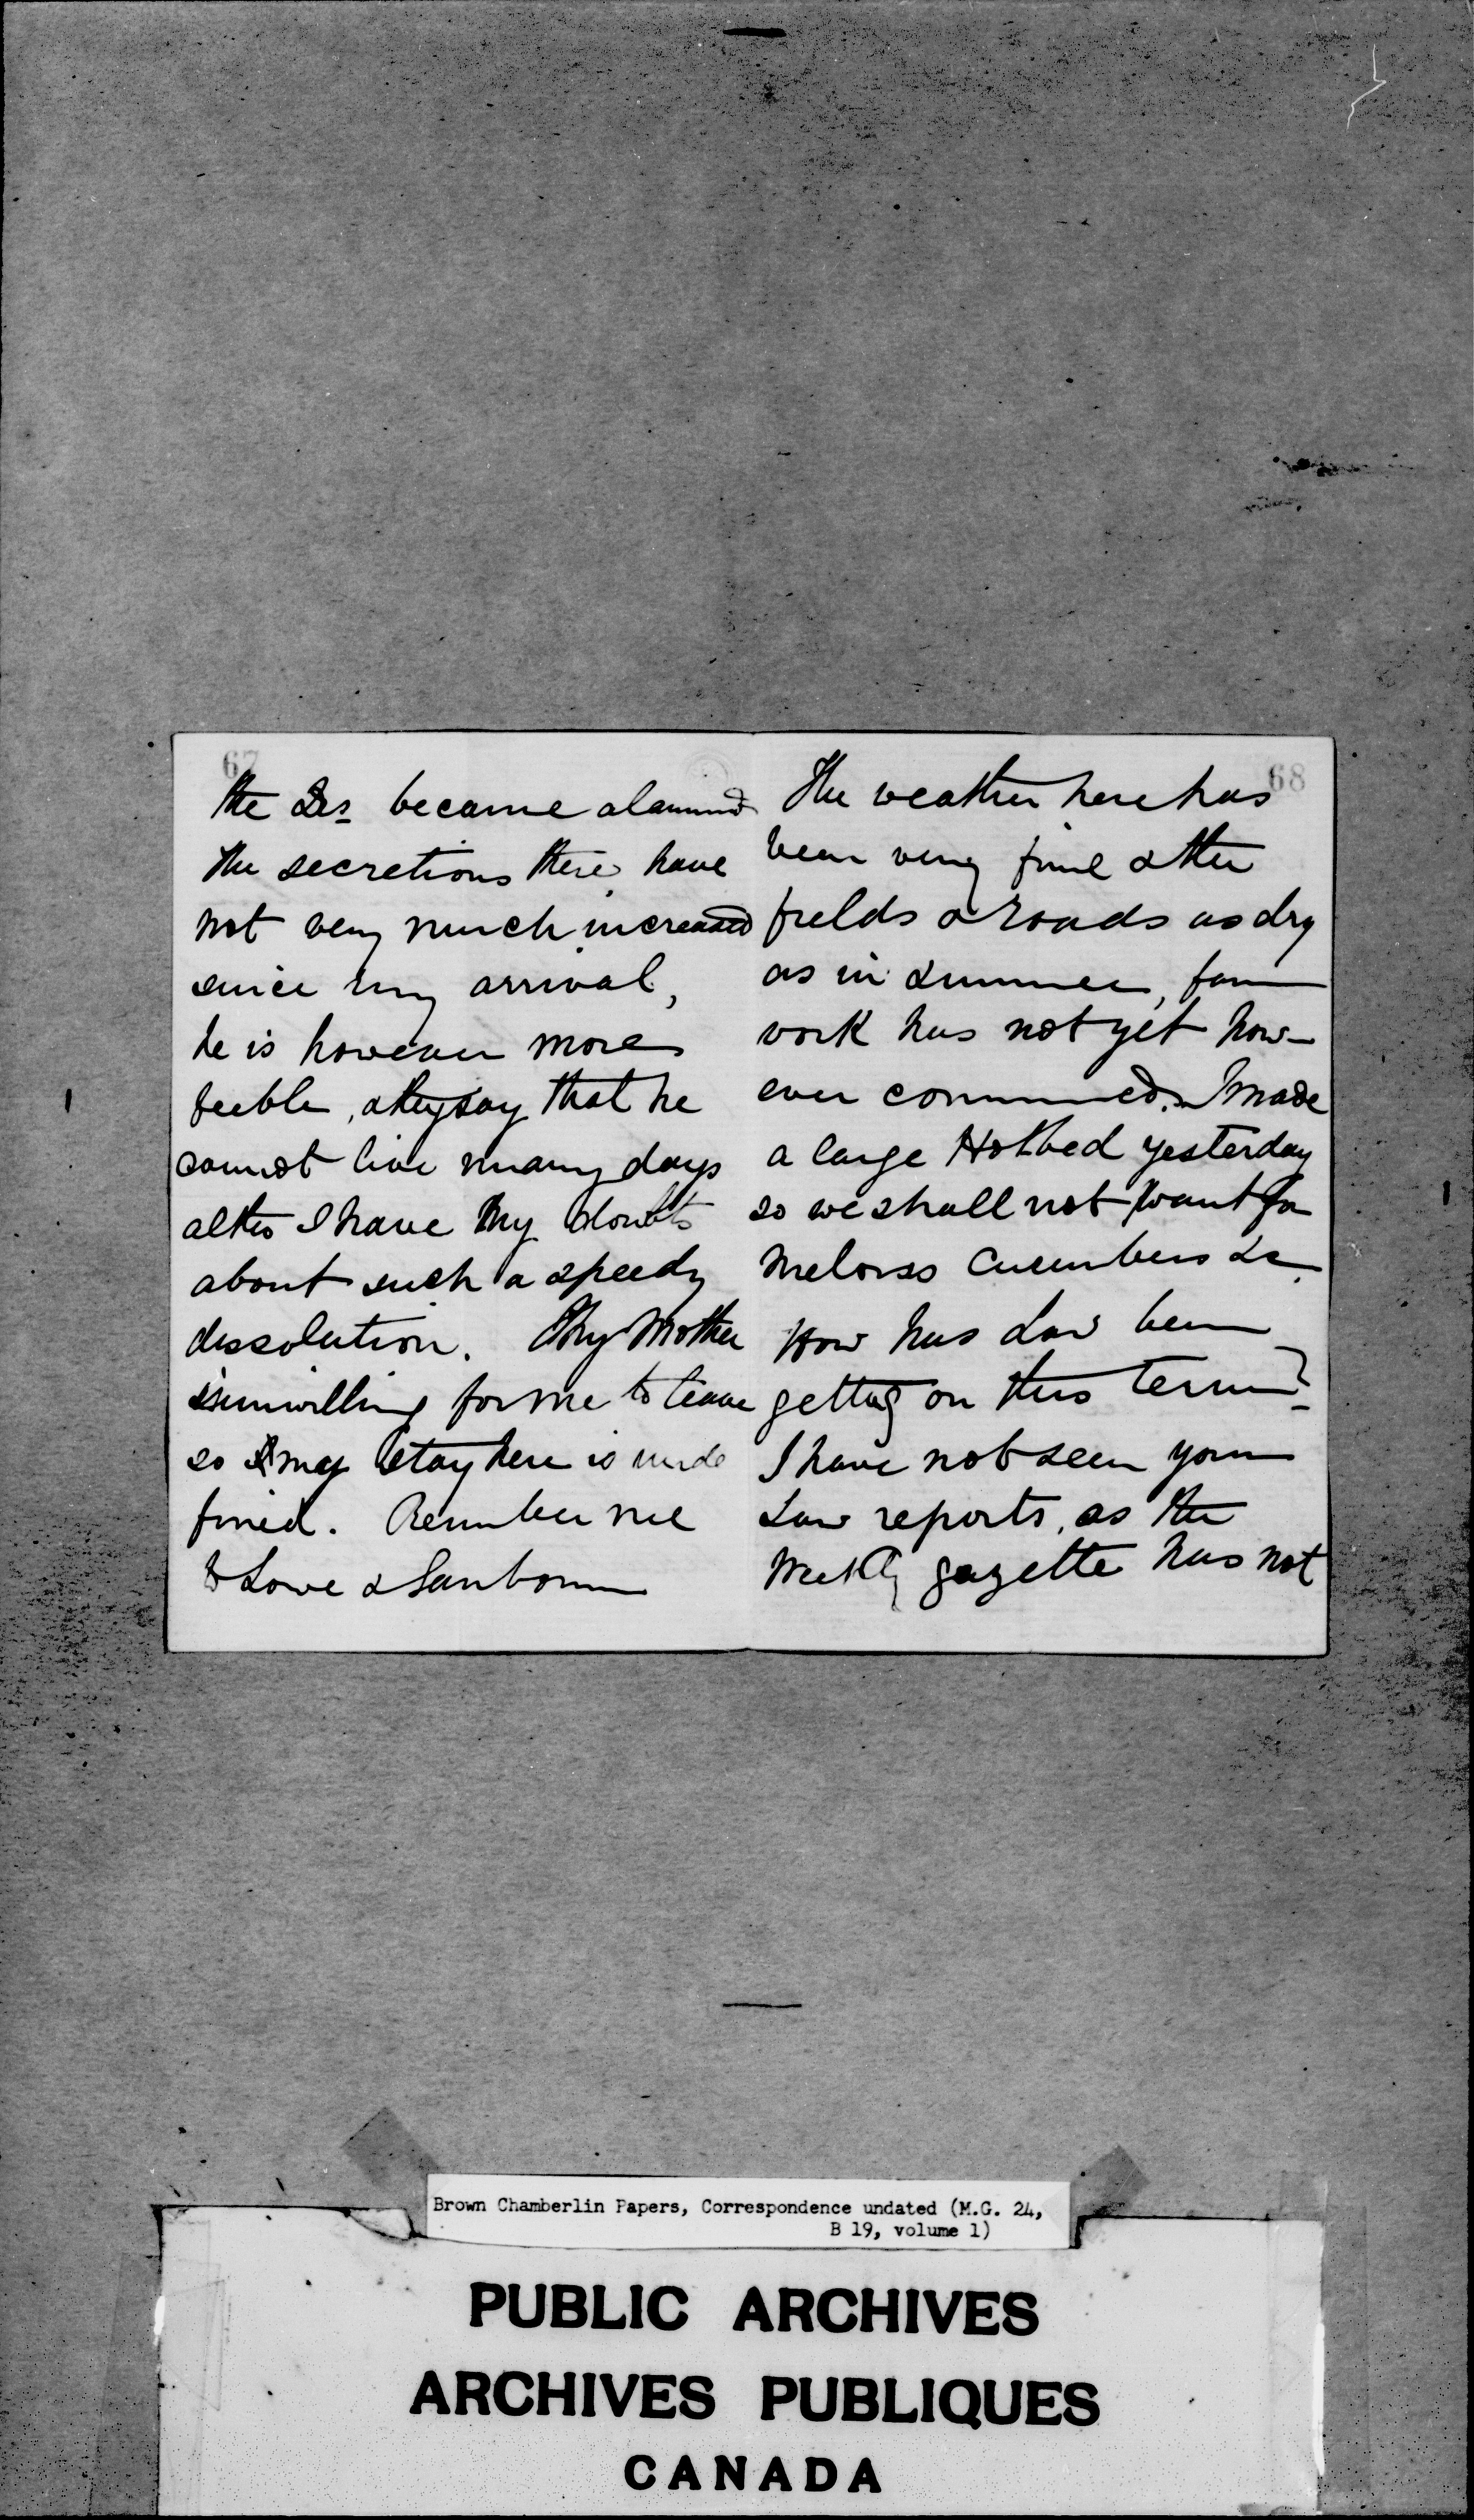 67
the Drs became alarmed
The secretions there have
not very much increased
since my arrival,
he is however more
feeble, & they say that he
cannot live many days
altho I have my doubts
about such a speedy
dissolution. My Mother
is unwilling for me to leave
so my stay here is unde
fined. Remember me
to Lowe & Sanborn
68
The weather here has
been very fine & the
fields & roads as dry
as in summer, farm
work has not yet how-
ever commenced. I made
a large Hotbed yesterday
so we shall not want for
melons cucumbers &c
How has Law been
getting on this term?
I have not seen your
Law reports, as the
Weekly gazette has not
Brown Chamberlin Papers, Correspondence undated (M.G. 24,
B 19, volume 1)
PUBLIC ARCHIVES
ARCHIVES PUBLIQUES
CANADA